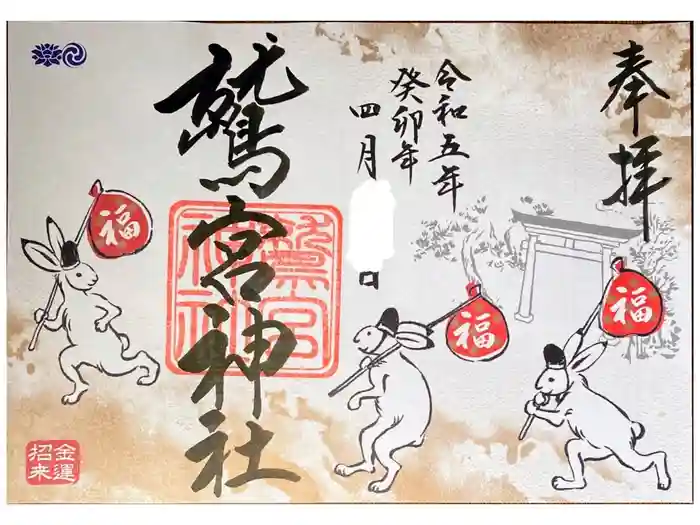 奉拝
令和五年
癸卯年
四月 日
鷲宮神社
鷲宮
神社
福
福
福
金運
招来